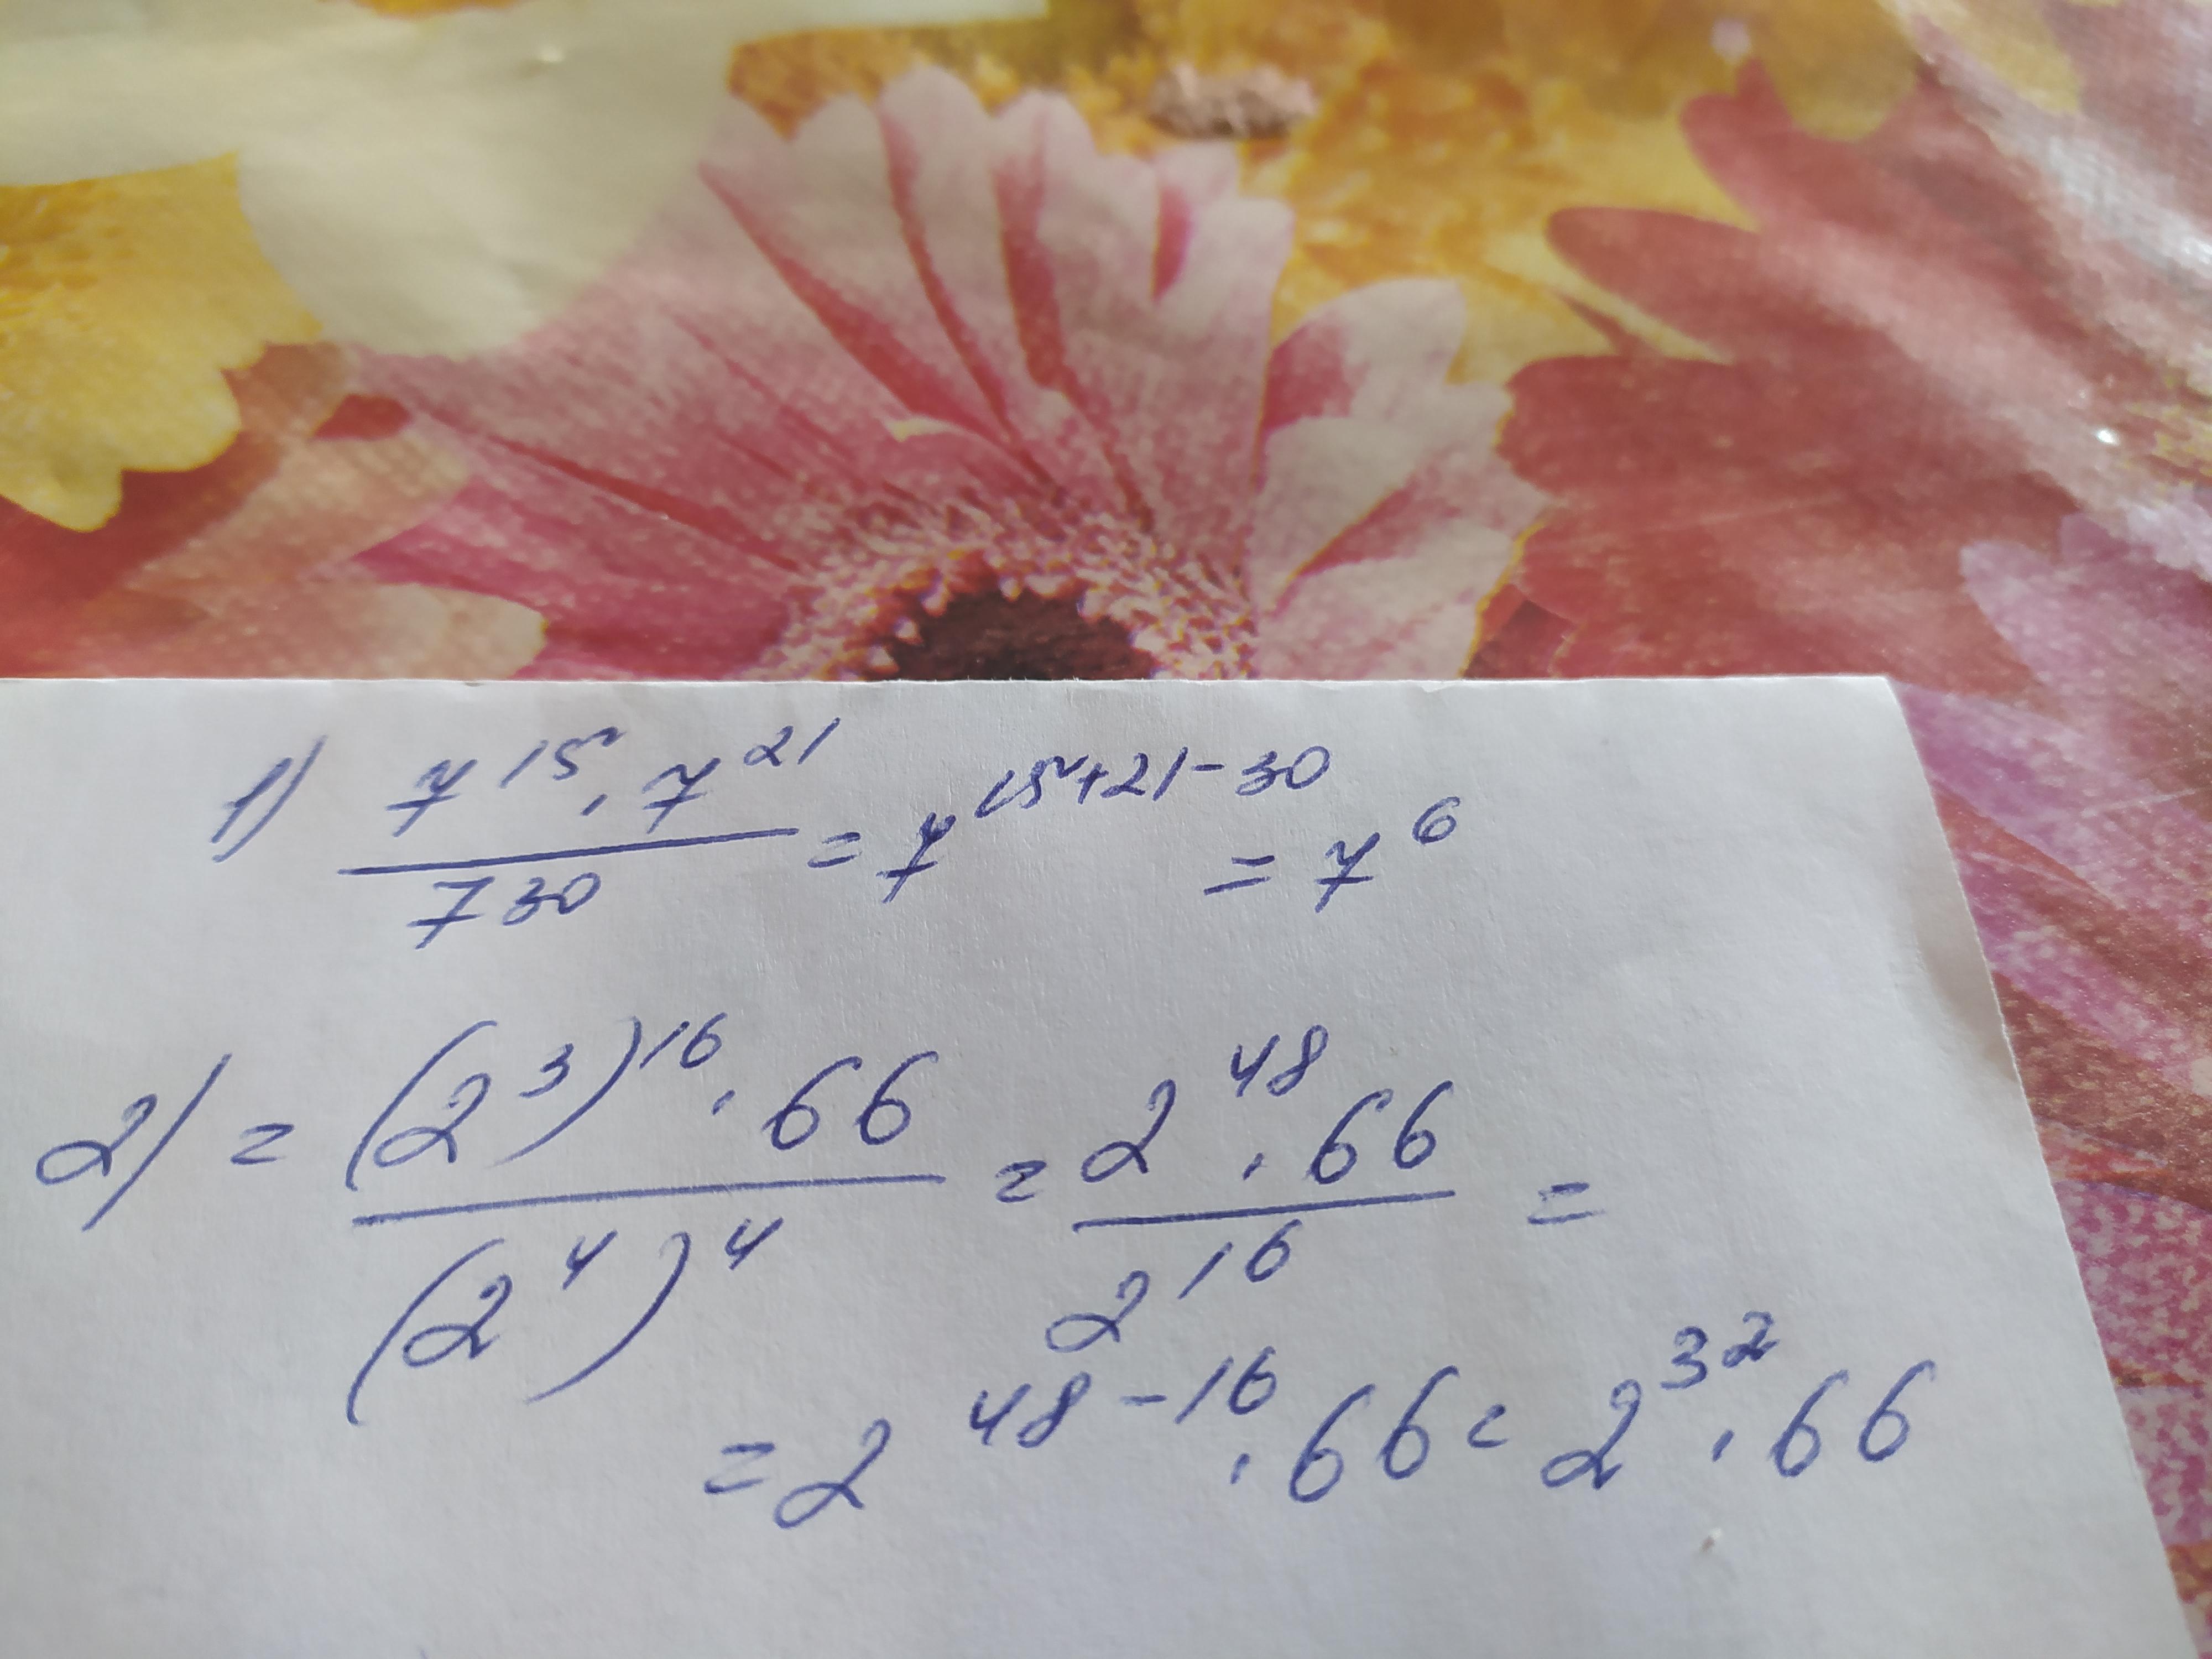 1) 7^15 · 7^21 / 7^30 = 7^15+21-30 = 7^6
2) = (2^3)^16 · 66 / (2^4)^4 = 2^48 · 66 / 2^16 =
= 2^48-16 · 66 = 2^32 · 66